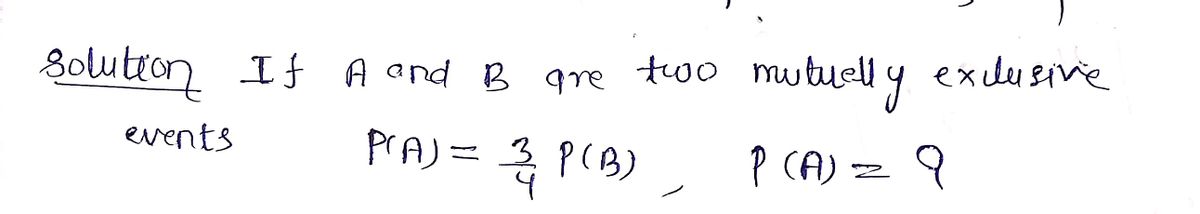 Solution If A and B are two mutually exclusive
events P(A) = 3/4 P(B), P(A) = ?